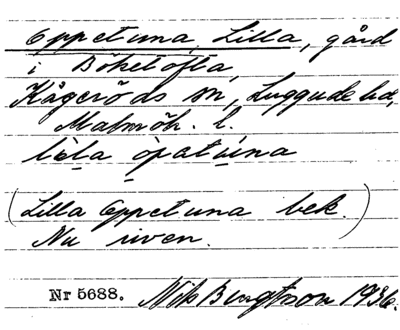 Oppetuna, Lilla, gård
i Böketofta,
Kågeröds sn, Luggude hd,
Malmöh. l.
lèla òpatúna
(Lilla Oppetuna bek.)
Nu riven.
Nr 5688. Nils Bengtsson 1936.